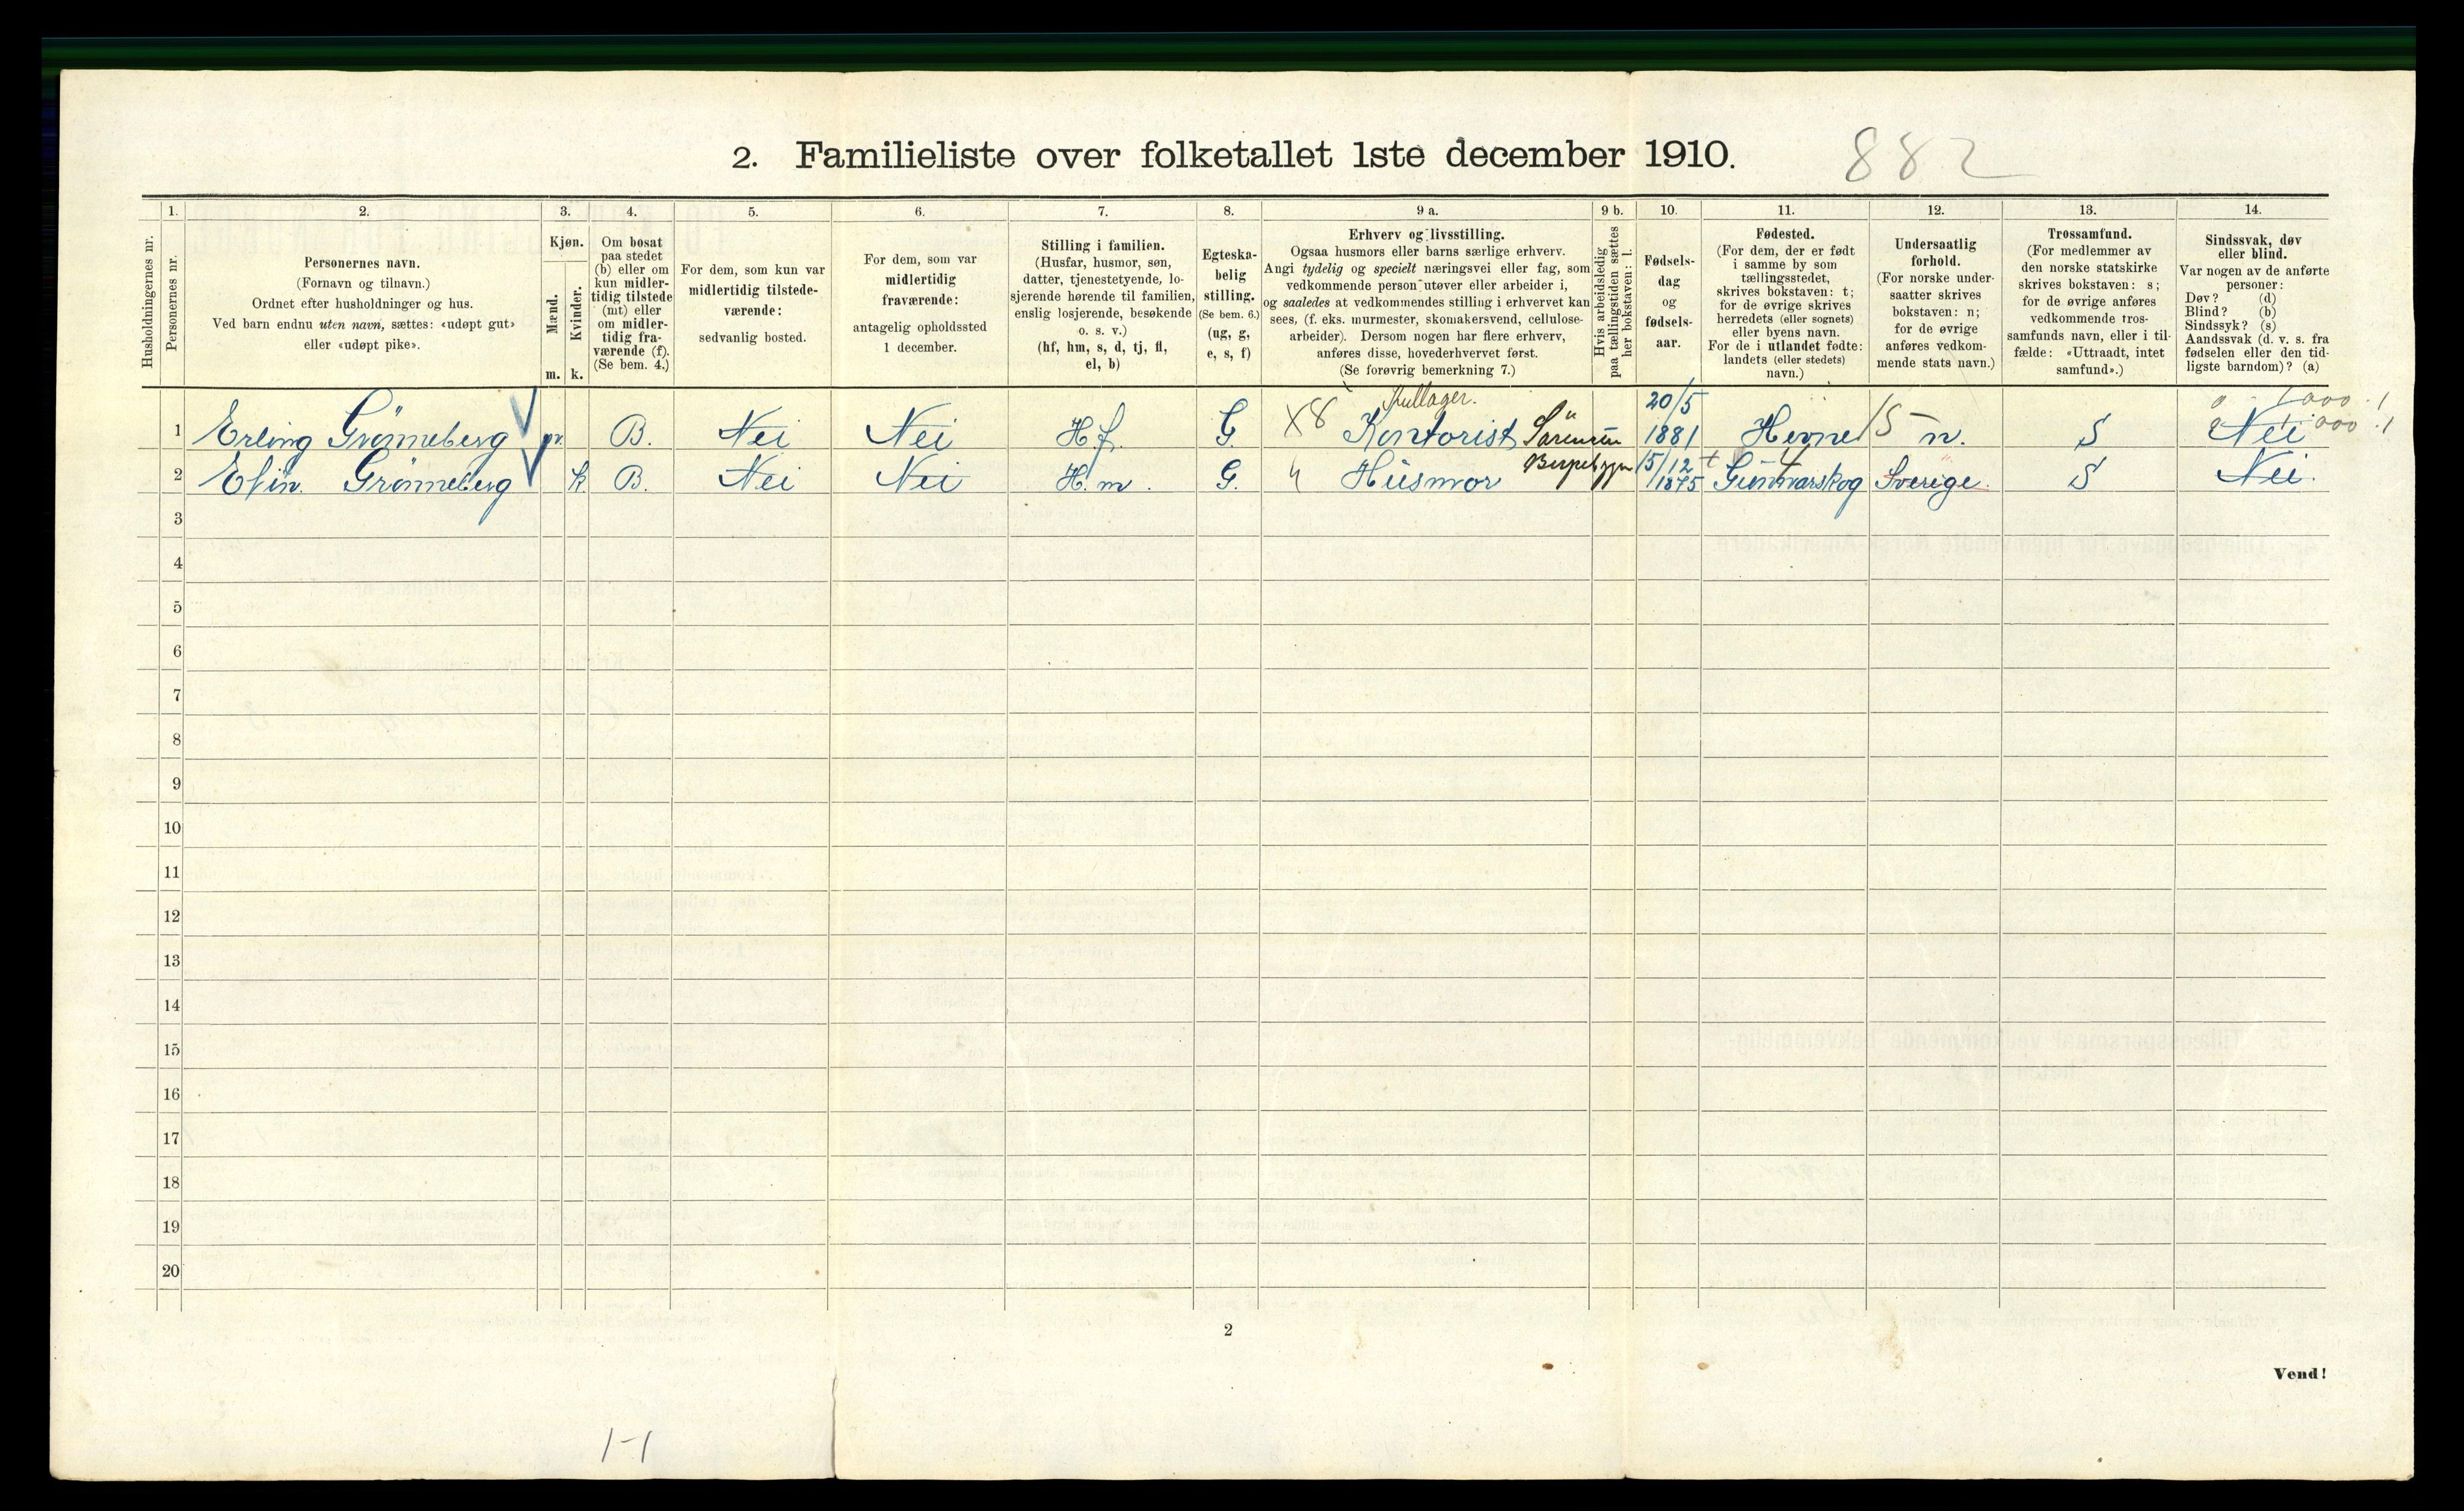 2. Familieliste over folketallet 1ste december 1910.
882
Husholdningernes nr.
1.
Personernes nr.
2.
Personernes navn.
(Fornavn og tilnavn.)
Ordnet efter husholdninger og hus.
Ved barn endnu uten navn, sættes: «udøpt gut»
eller «udøpt pike».
3.
Kjøn.
Mænd.
Kvinder.
m. k.
4.
Om bosat
paa stedet
(b) eller om
kun midler-
tidig tilstede
(mt) eller
om midler-
tidig fra-
værende (f).
(Se bem. 4.)
5.
For dem, som kun var
midlertidig tilstede-
værende:
sedvanlig bosted.
6.
For dem, som var
midlertidig
fraværende:
antagelig opholdssted
1 december.
7.
Stilling i familien.
(Husfar, husmor, søn,
datter, tjenestetyende, lo-
sjerende hørende til familien,
enslig losjerende, besøkende
o. s. v.)
(hf, hm, s, d, tj, fl,
el, b)
8.
Egteska-
belig
stilling.
(Se bem. 6.)
(ug, g,
e, s, f)
9 a.
Erhverv og livsstilling.
Ogsaa husmors eller barns særlige erhverv.
Angi tydelig og specielt næringsvei eller fag, som
vedkommende person utøver eller arbeider i,
og saaledes at vedkommendes stilling i erhvervet kan
sees, (f. eks. murmester, skomakersvend, cellulose-
arbeider). Dersom nogen har flere erhverv,
anføres disse, hovederhvervet først.
(Se forøvrig bemerkning 7.)
9 b.
Hvis arbeidsledig
paa tællingstiden sættes
her bokstaven: l.
10.
Fødsels-
dag
og
fødsels-
aar.
11.
Fødested.
(For dem, der er født
i samme by som
tællingsstedet,
skrives bokstaven: t;
for de øvrige skrives
herredets (eller sognets)
eller byens navn.
For de i utlandet fødte:
landets (eller stedets)
navn.)
12.
Undersaatlig
forhold.
(For norske under-
saatter skrives
bokstaven: n;
for de øvrige
anføres vedkom-
mende stats navn.)
13.
Trossamfund.
(For medlemmer av
den norske statskirke
skrives bokstaven: s;
for de øvrige anføres
vedkommende tros-
samfunds navn, eller i til-
fælde: «Uttraadt, intet
samfund».)
14.
Sindssvak, døv
eller blind.
Var nogen av de anførte
personer:
Døv? (d)
Blind? (b)
Sindssyk? (s)
Aandssvak (d. v. s. fra
fødselen eller den tid-
ligste barndom)? (a)
1 Erling Grønneberg m. B. Nei Nei H.f. G. X8 Kontorist Sörensen 20/5 1881 Hevne 15 n. S Nei
2 Elin Grønneberg k. B. Nei Nei H.m. G. 4 Husmor 15/12 1875 + Gunnarskog Sverige. S Nei.
3
4
5
6
7
8
9
10
11
12
13
14
15
16
17
18
19
20
2
Vend!
1-1